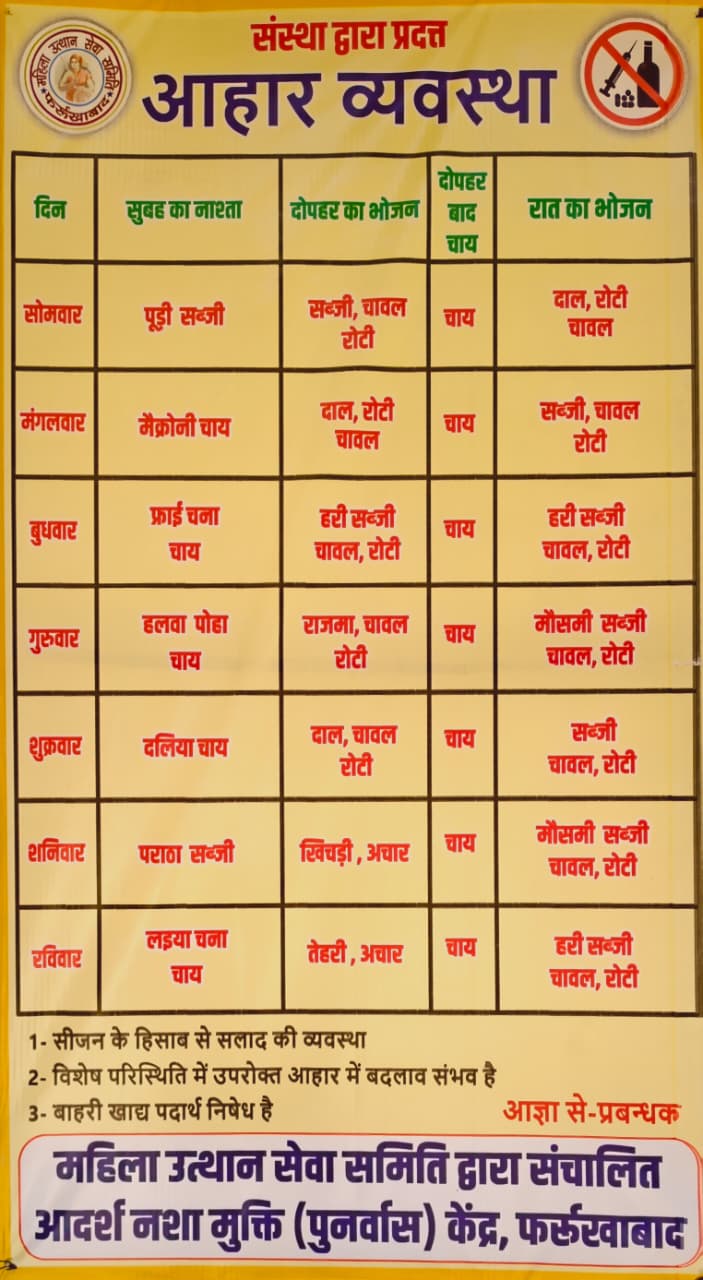 महिला उत्थान सेवा समिति
फर्रूखाबाद
संस्था द्वारा प्रदत्त
आहार व्यवस्था
दिन सुबह का नाश्ता दोपहर का भोजन दोपहर बाद चाय रात का भोजन
सोमवार पूड़ी सब्जी सब्जी, चावल रोटी चाय दाल, रोटी चावल
मंगलवार मैक्रोनी चाय दाल, रोटी चावल चाय सब्जी, चावल रोटी
बुधवार फ्राई चना चाय हरी सब्जी चावल, रोटी चाय हरी सब्जी चावल, रोटी
गुरुवार हलवा पोहा चाय राजमा, चावल रोटी चाय मौसमी सब्जी चावल, रोटी
शुक्रवार दलिया चाय दाल, चावल रोटी चाय सब्जी चावल, रोटी
शनिवार पराठा सब्जी खिचड़ी, अचार चाय मौसमी सब्जी चावल, रोटी
रविवार लइया चना चाय तेहरी, अचार चाय हरी सब्जी चावल, रोटी
1- सीजन के हिसाब से सलाद की व्यवस्था
2- विशेष परिस्थिति में उपरोक्त आहार में बदलाव संभव है
3- बाहरी खाद्य पदार्थ निषेध है
आज्ञा से-प्रबन्धक
महिला उत्थान सेवा समिति द्वारा संचालित
आदर्श नशा मुक्ति (पुनर्वास) केंद्र, फर्रूखाबाद